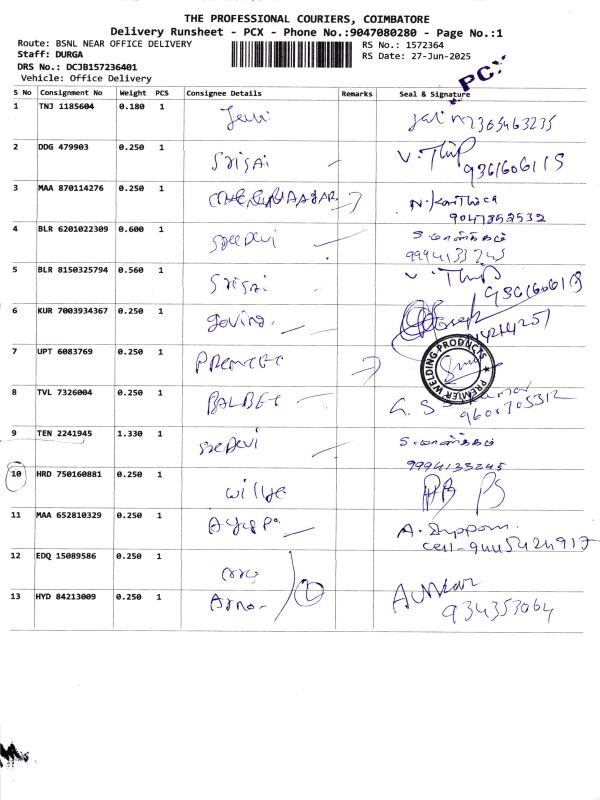 THE PROFESSIONAL COURIERS, COIMBATORE
Delivery Runsheet - PCX - Phone No.:9047080280 - Page No.:1
Route: BSNL NEAR OFFICE DELIVERY RS No.: 1572364
Staff: DURGA RS Date: 27-Jun-2025
DRS No.: DCJB157236401
Vehicle: Office Delivery
PCX
S No Consignment No Weight PCS Consignee Details Remarks Seal & Signature
1 TNJ 1185604 0.180 1
2 DDG 479903 0.250 1 Srisai V. Thip
9361606115
3 MAA 870114276 0.250 1
9047352532
4 BLR 6201022309 0.600 1 Sreedevi
9994133245
5 BLR 8150325794 0.560 1 Srisai V. Thip
9361606115
6 KUR 7003934367 0.250 1 Govind
7 UPT 6083769 0.250 1 PREMIER PREMIER WELDING PRODUCTS
8 TVL 7326004 0.250 1
9600705312
9 TEN 2241945 1.330 1 Sreedevi
9994133245
10 HRD 750160881 0.250 1
11 MAA 652810329 0.250 1
cell-9445424917
12 EDQ 15089586 0.250 1
13 HYD 84213009 0.250 1
934353064